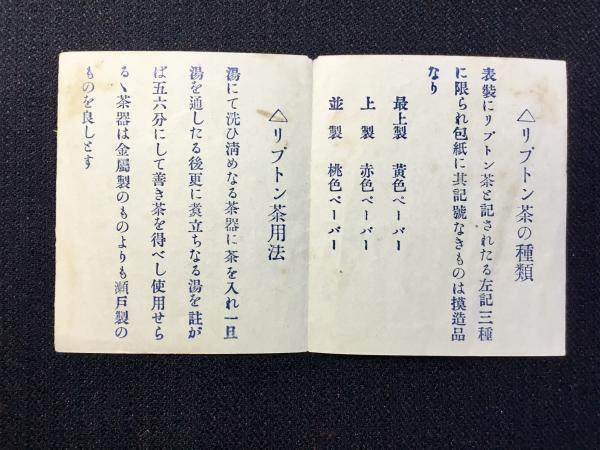 △リプトン茶の種類
表裝にリプトン茶と記されたる左記三種
に限られ包紙に其記號なきものは摸造品
なり
最上製 黃色ペーパー
上製 赤色ペーパー
並製 桃色ペーパー
△リプトン茶用法
湯にて洗ひ淸めなる茶器に茶を入れ一旦
湯を通したる後更に煑立ちなる湯を註が
ば五六分にして善き茶を得べし使用せら
るゝ茶器は金屬製のものよりも瀬戸製の
ものを良しとす